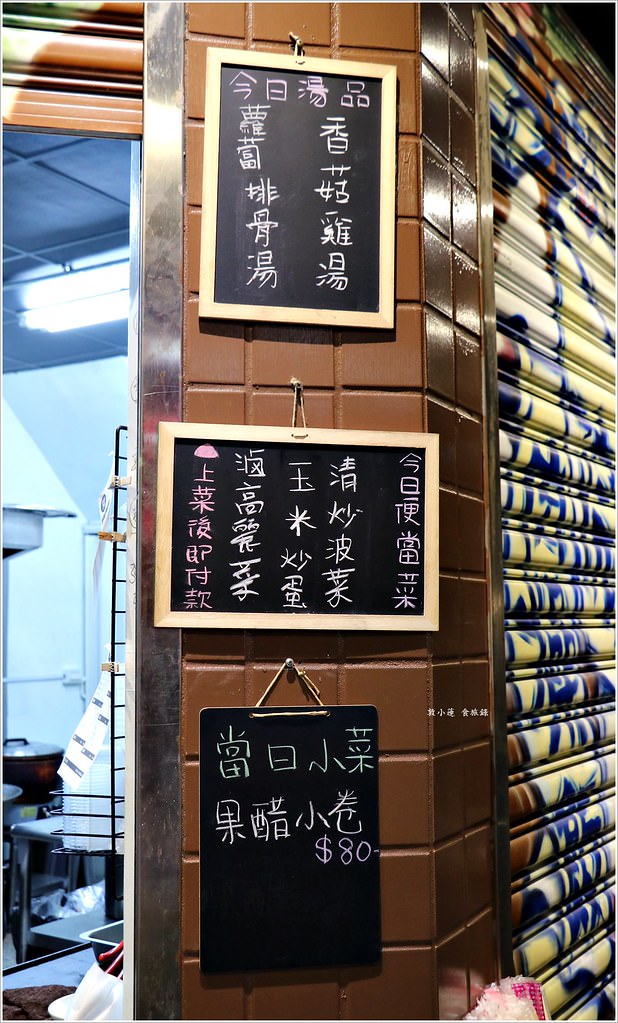 今日湯品
香菇雞湯
蘿蔔排骨湯
今日便當菜
清炒波菜
玉米炒蛋
滷高麗菜
上菜後即付款
當日小菜
果醋小卷
$80-
敦小蓮 食旅錄